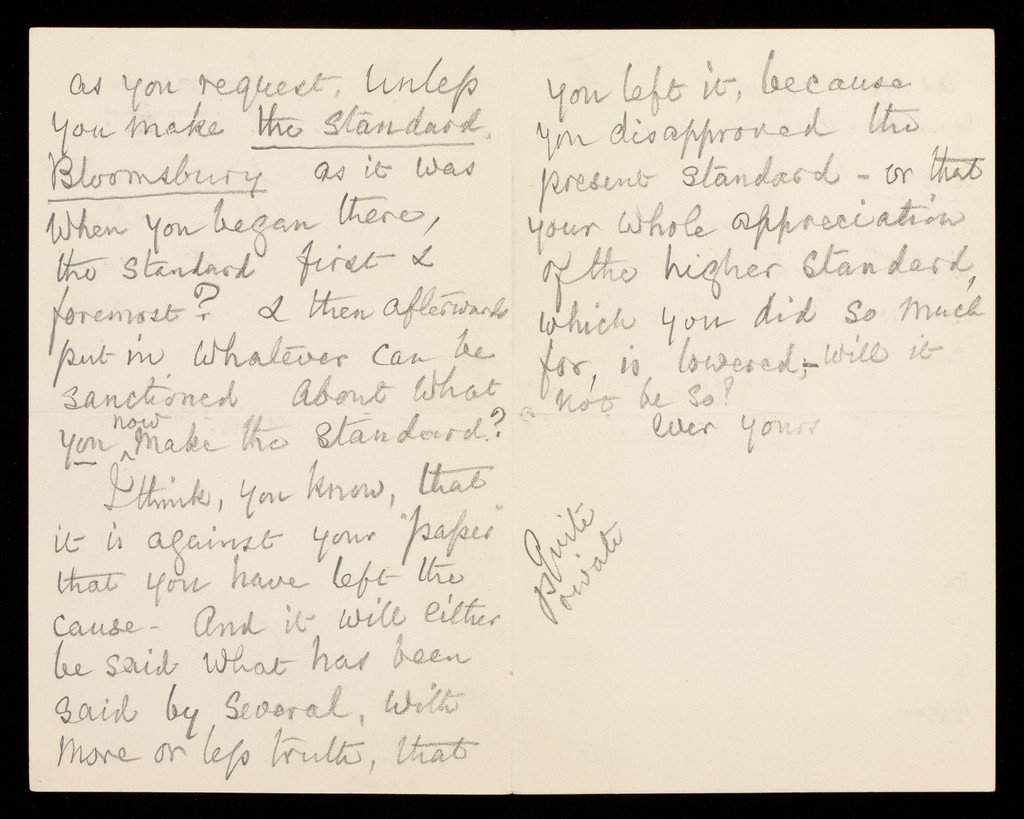 as you request, unless
you make the standard,
Bloomsbury as it was
when you began there,
the standard first &
foremost? & then afterwards
put in whatever can be
sanctioned about what
you now make the standard?
I think, you know, that
it is against your "paper"
that you have left the
cause - And it will either
be said what has been
said by several, with
more or less truth, that
you left it, because
you disapproved the
present standard - or that
your whole appreciation
of the higher standard,
which you did so much
for, is lowered, - will it
not be so?
ever yours
Quite
private